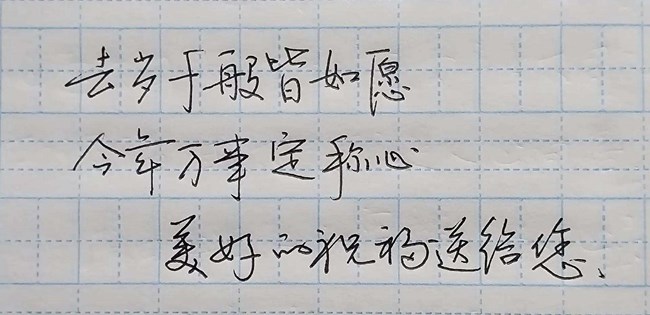 去岁千般皆如愿
今年万事定称心
美好的祝福送给您、